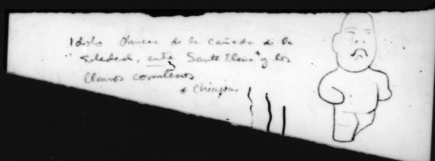 Idolo Olmeca de la Cañada de la
Soledad, entre Santa Elena y los
Llanos
Chiapas